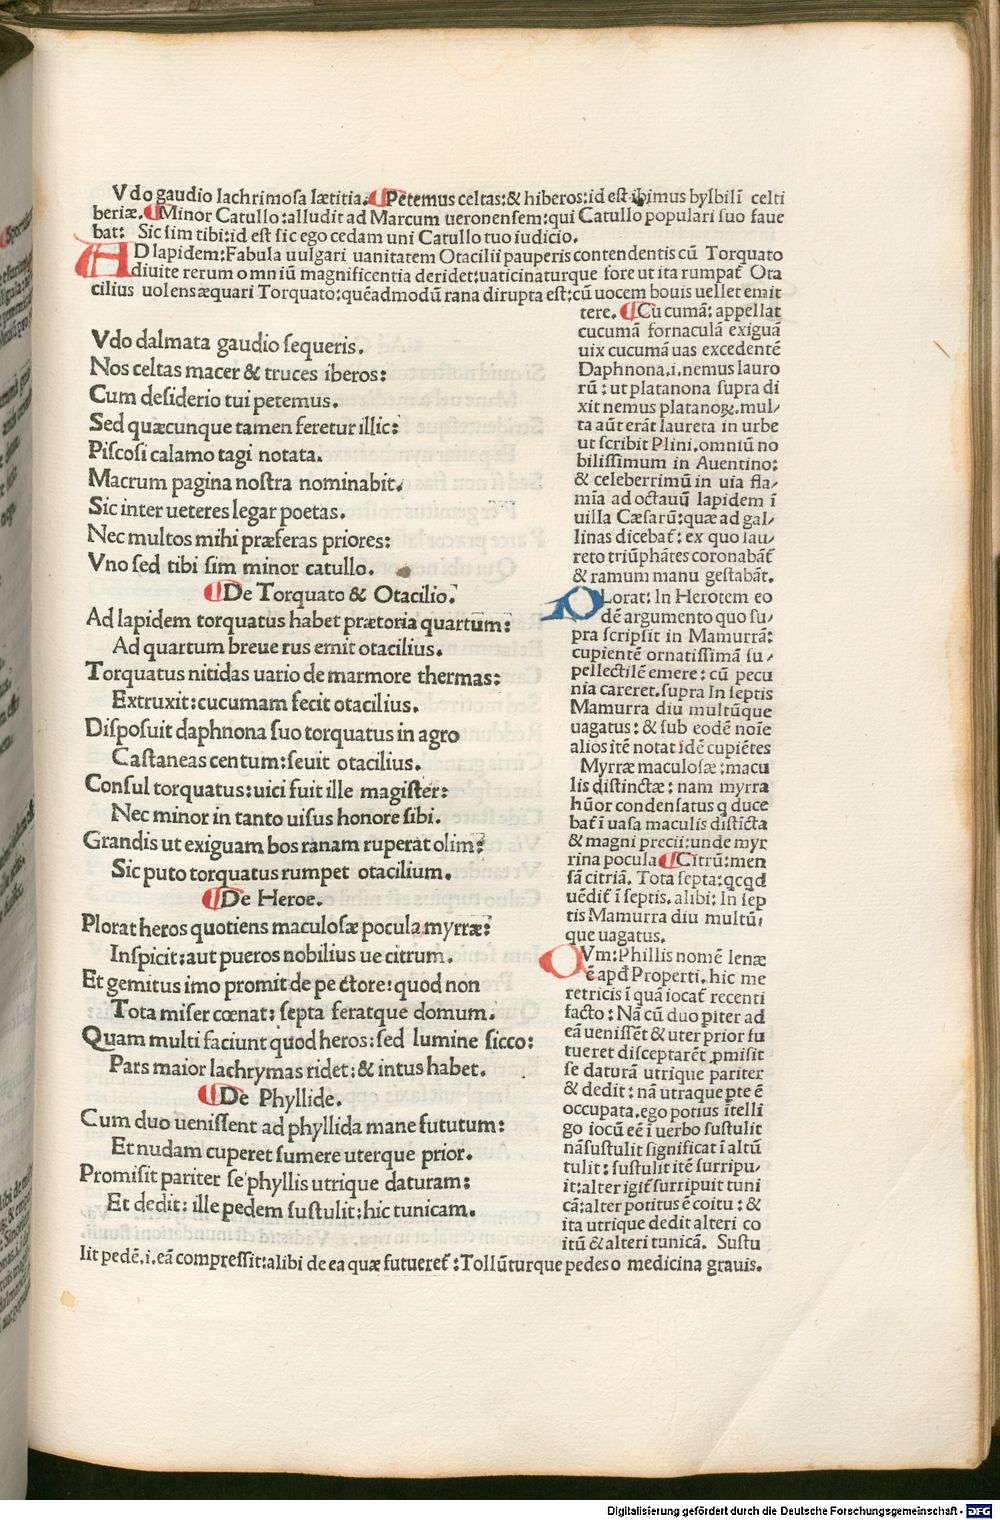 Vdo gaudio lachrimosa lætitia. Petemus celtas: & hiberos: id est ibimus bylbili celti
beriæ. Minor Catullo: alludit ad Marcum ueronensem: qui Catullo populari suo faue
bat: Sic sim tibi: id est sic ego cedam uni Catullo tuo iudicio.
AD lapidem: Fabula uulgari uanitatem Otacilii pauperis contendentis cū Torquato
diuite rerum omniū magnificentia deridet: uaticinaturque fore ut ita rumpat̃ Ota
cilius uolens æquari Torquato: quēadmodū rana dirupta est: cū uocem bouis uellet emit
tere. Cucumā: appellat
cucumā fornaculā exiguā
uix cucumā uas excedentē
Daphnona .i. nemus lauro
rū: ut platanona supra di
xit nemus platanoꝝ. mul-
ta aūt erāt laureta in urbe
ut scribit Plini. omniū no
bilissimum in Auentino:
& celeberrimū in uia fla-
mīa ad octauū lapidem ī
uilla Cæsarū: quæ ad gal-
linas dicebat̃: ex quo lau-
reto triūphātes coronabāt̃
& ramum manu gestabāt.
Vdo dalmata gaudio sequeris.
Nos celtas macer & truces iberos:
Cum desiderio tui petemus.
Sed quæcunque tamen feretur illic:
Piscosi calamo tagi notata.
Macrum pagina nostra nominabit.
Sic inter ueteres legar poetas.
Nec multos mihi præferas priores:
Vno sed tibi sim minor catullo.
De Torquato & Otacilio.
Ad lapidem torquatus habet prætoria quartum:
Ad quartum breue rus emit otacilius.
Torquatus nitidas uario de marmore thermas:
Extruxit: cucumam fecit otacilius.
Disposuit daphnona suo torquatus in agro
Castaneas centum: seuit otacilius.
Consul torquatus: uici fuit ille magister:
Nec minor in tanto uisus honore sibi.
Grandis ut exiguam bos ranam ruperat olim:
Sic puto torquatus rumpet otacilium.
De Heroe.
Plorat heros quotiens maculosæ pocula myrræ:
Inspicit: aut pueros nobilius ue citrum.
Et gemitus imo promit de pectore: quod non
Tota miser cœnat: septa feratque domum.
Quam multi faciunt quod heros: sed lumine sicco:
Pars maior lachrymas ridet: & intus habet.
De Phyllide.
Cum duo uenissent ad phyllida mane fututum:
Et nudam cuperet sumere uterque prior.
Promisit pariter se phyllis utrique daturam:
Et dedit: ille pedem sustulit: hic tunicam.
PLorat: In Herotem eo
dē argumento quo su-
pra scripsit in Mamurrā:
cupientē ornatissimā su-
pellectilē emere: cū pecu
nia careret. supra In septis
Mamurra diu multūque
uagatus: & sub eodē noīe
alios itē notat idē cupiētes
Myrræ maculosæ: macu
lis distinctæ: nam myrra
hūor condensatus q̄ duce
bat̃ ī uasa maculis disticta
& magni precii: unde myr
rina pocula Citrū: men
sā citriā. Tota septa: qcqd
uēdit̃ ī septis. alibi: In sep
tis Mamurra diu multū-
que uagatus.
CVm: Phillis nomē lenæ
ē apđ Properti. hic me
retricis ī quā iocat̃ recenti
facto: Nā cū duo piter ad
eā uenissēt & uter prior fu
tueret disceptarēt pmisit
se daturā utrique pariter
& dedit: nā utraque pte ē
occupata. ego potius ītelli
go iocū eē ī uerbo sustulit
nā sustulit significat ī altū
tulit: sustulit itē surripu-
it: alter igit̃ surripuit tuni
cā: alter potitus ē coitu: &
ita utrique dedit alteri co
itū & alteri tunicā. Sustu
lit pedē .i. eā compressit: alibi de ea quæ futueret̃: Tollūturque pedes o medicina grauis.
Digitalisierung gefördert durch die Deutsche Forschungsgemeinschaft - DFG